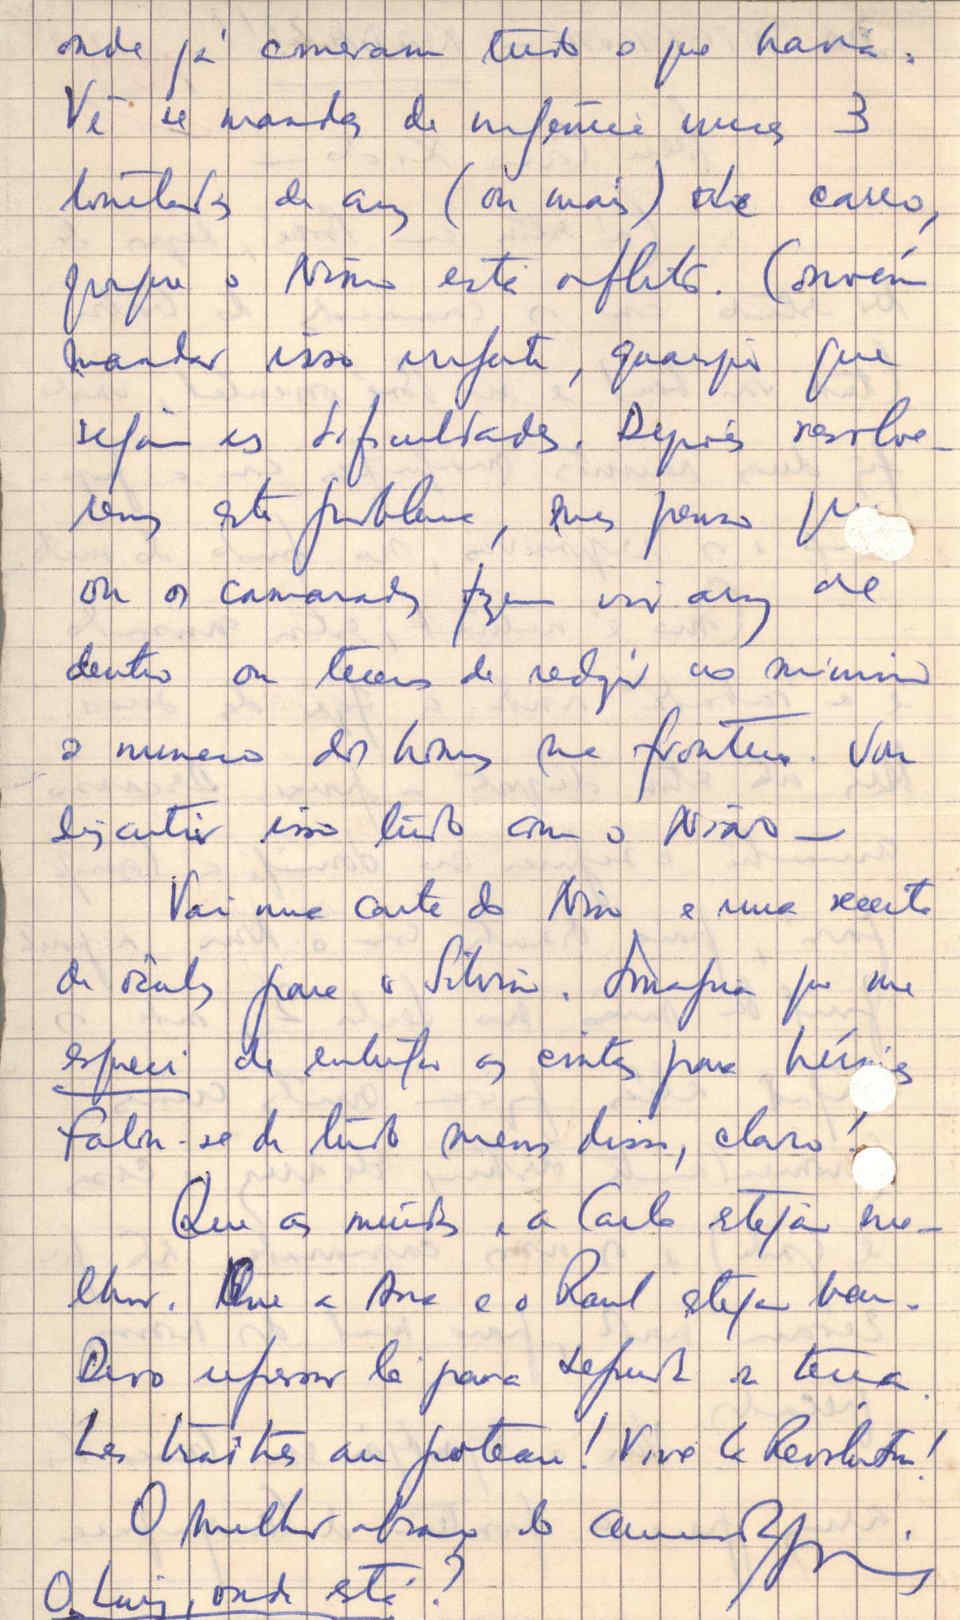 onde já comeram tudo o que havia.
Vê se mandas de urgência umas 3
toneladas de arroz (ou mais) de carro,
porque o Nino está aflito. Convém
mandar isso urgente, quaisquer que
sejam as dificuldades. Depois resolve-
remos este problema, mas penso que
ou os camaradas fazem vir arroz de
dentro ou temos de reduzir ao mínimo
o numero dos homens na fronteira. Vou
discutir isso tudo com o Nino —
Vai uma carta do Nino e uma receita
de óculos para o Silvino. Imagina que me
esqueci de entregar as cintas para hérnias
Falou-se de tudo menos disso, claro!
Que os miúdos e a Carla estejam me-
lhor. Que a Ana e o Raul estejam bem.
Devo regressar lá para segunda ou terça.
Les traîtres au poteau! Vive la Revolution!
O melhor abraço do camarada
O Luiz, onde está?